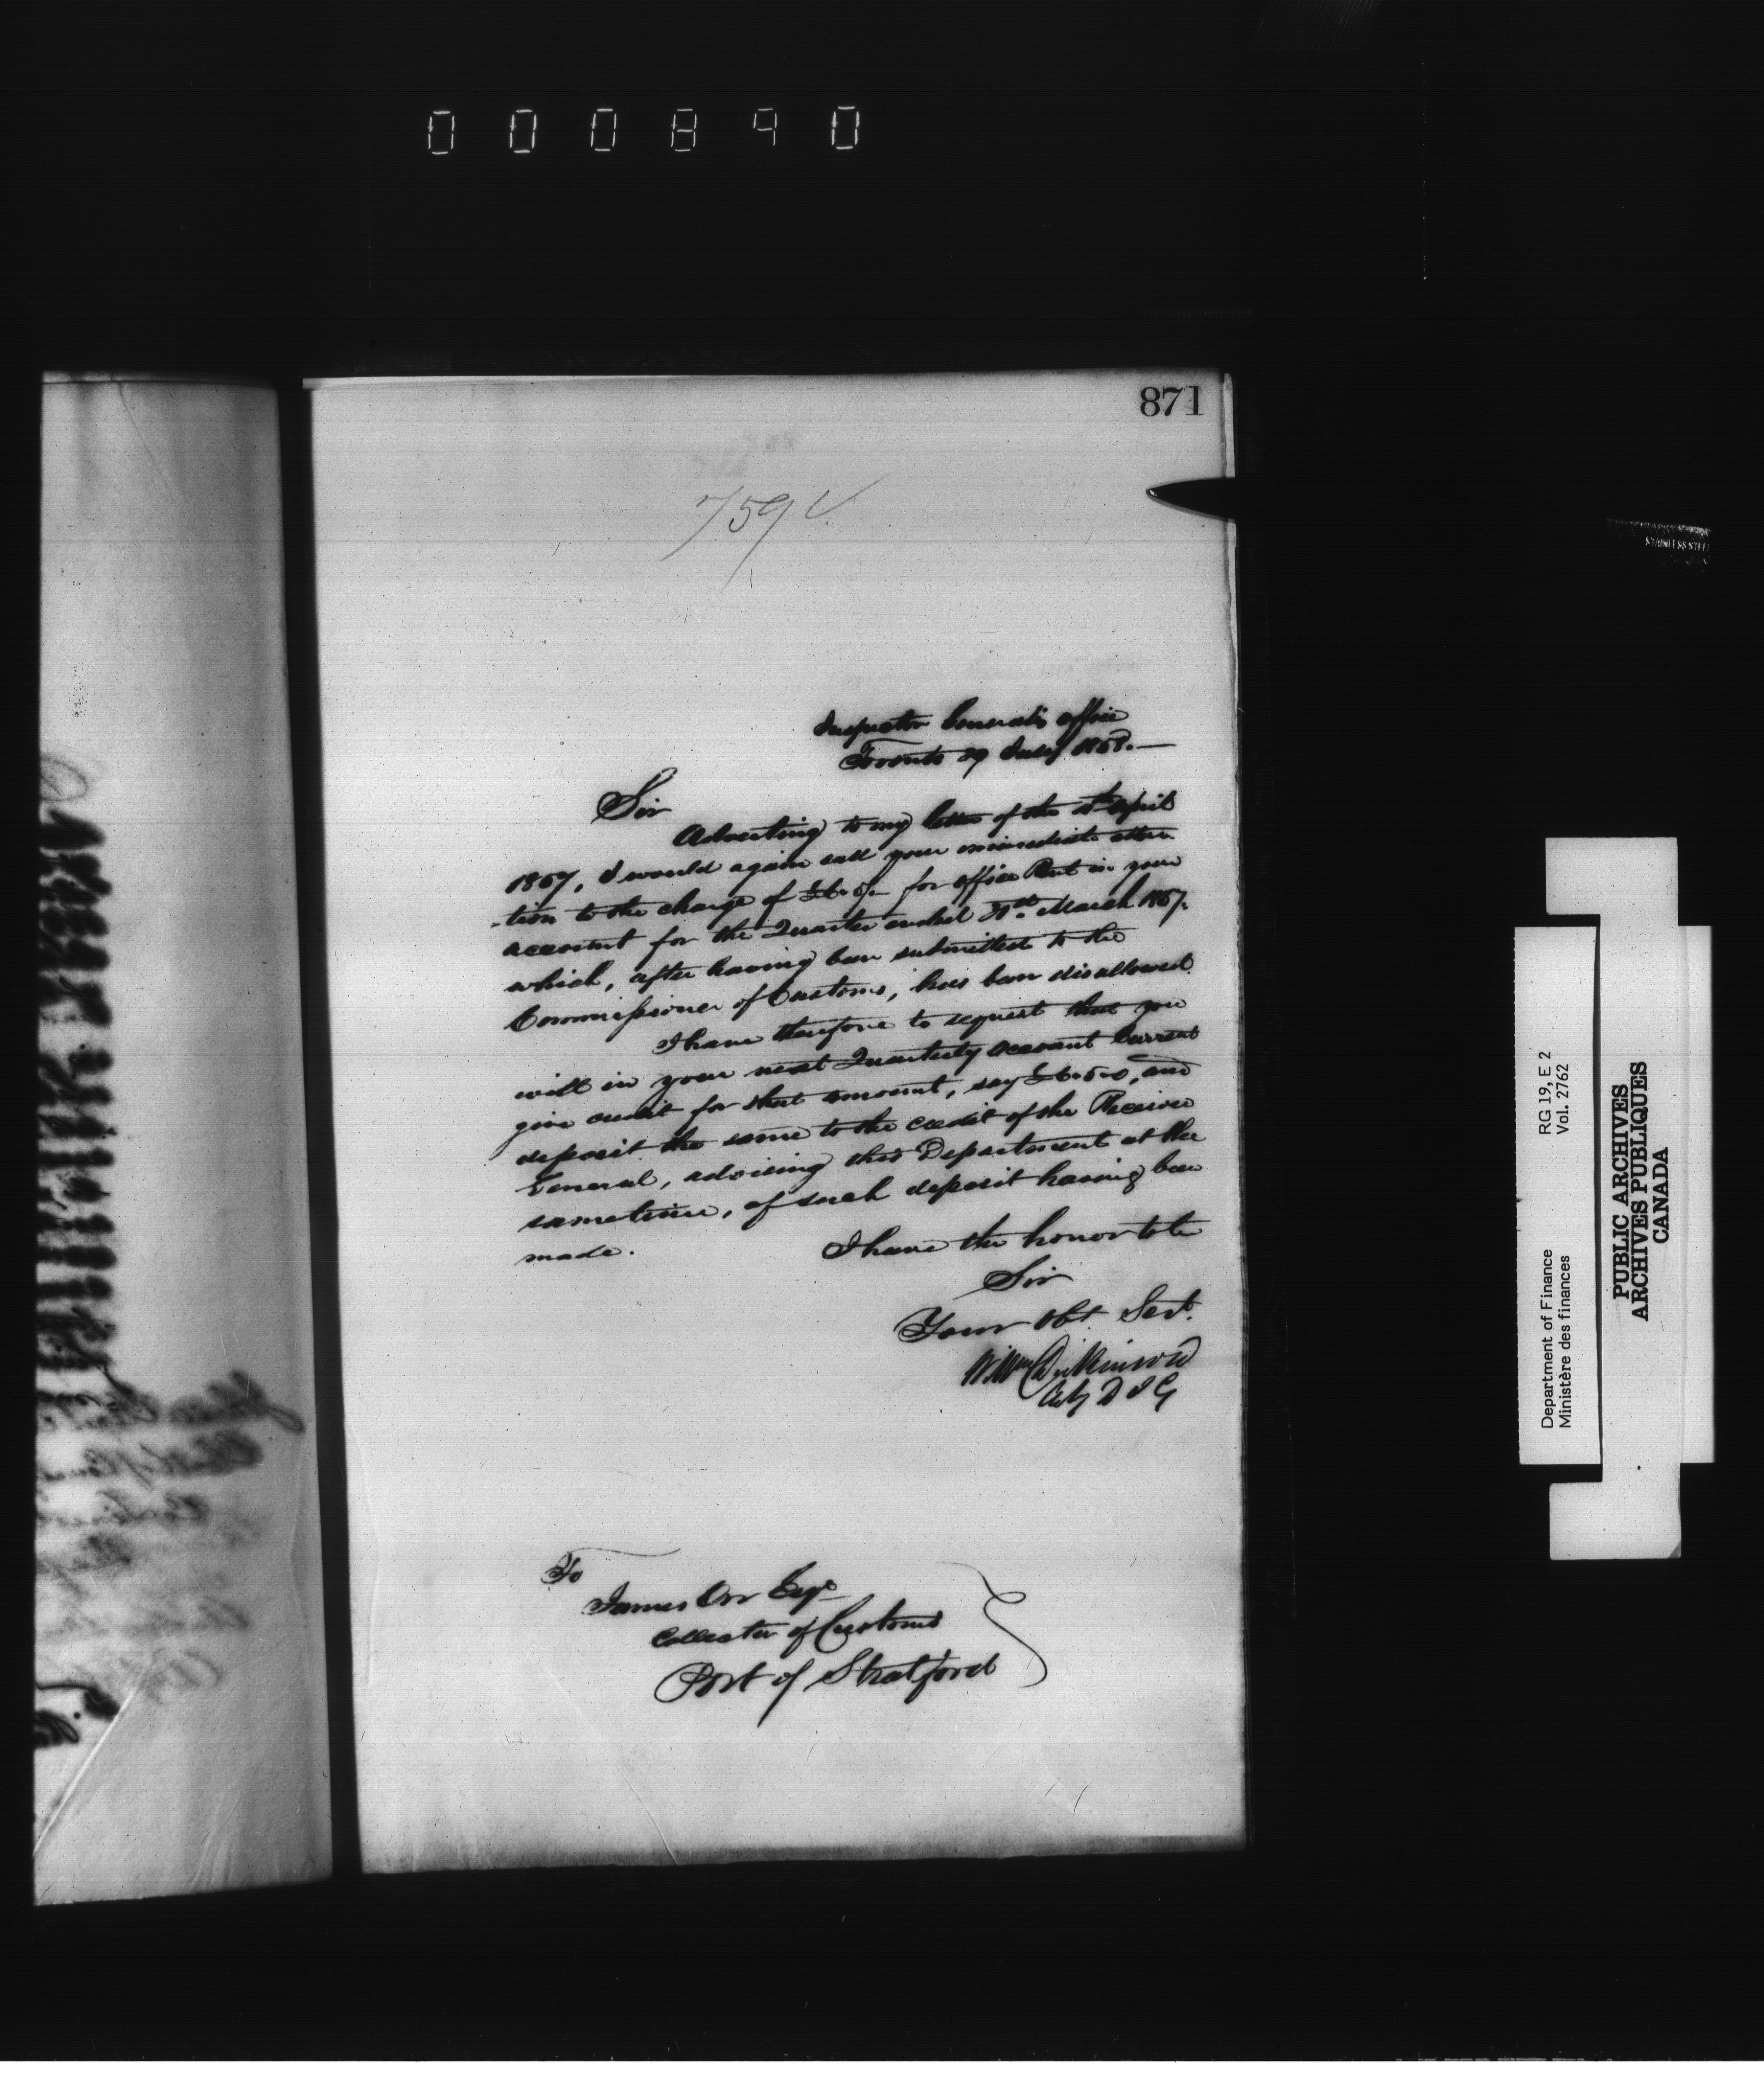 000890
871
759
Inspector General's office
Toronto 29 July 1858.—
Sir
Adverting to my letter of the April
1857, I would again call your immediate atten
-tion to the charge of for office Rent in your
account for the Quarter ended 31st March 1857.
which, after having been submitted to the
Commissioner of Customs, has been disallowed.
I have therefore to request that you
will in your next Quarterly account Current
give credit for that amount, say £6.5.0, and
deposit the same to the credit of the Receiver
General, advising this Department at the
sametime, of such deposit having been
made.
I have the honor to be
Sir
Your Obt Servt.
Wm Dickinson
Actg D I G
To
James Orr Esqr
Collector of Customs
Port of Stratford
Department of Finance
Ministère des finances
RG 19, E 2
Vol. 2762
PUBLIC ARCHIVES
ARCHIVES PUBLIQUES
CANADA